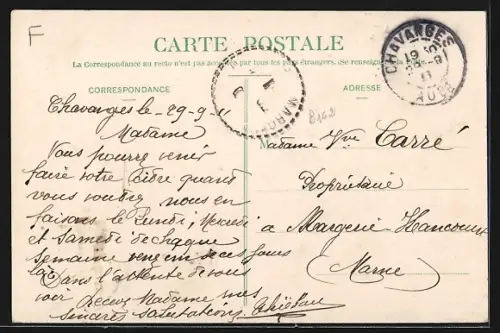 F
CARTE POSTALE
La Correspondance au recto n'est pas acceptée par tous les pays étrangers. (Se renseigner
CORRESPONDANCE
ADRESSE
CHAVANGES
AUBE
MARGERIE
Chavanges le 29-9-11
Madame
Vous pouvez venir
faire votre Cidre quant
vous voudrez nous en
faisons le Lundi, Mercredi
et Samedi de chaque
Semaine venez un de ces jours
là Dans l'attente de vous
voir Recevez Madame mes
sincères salutations
Madame Vve Carré
Propriétaire
à Margerie-Hancourt
Marne